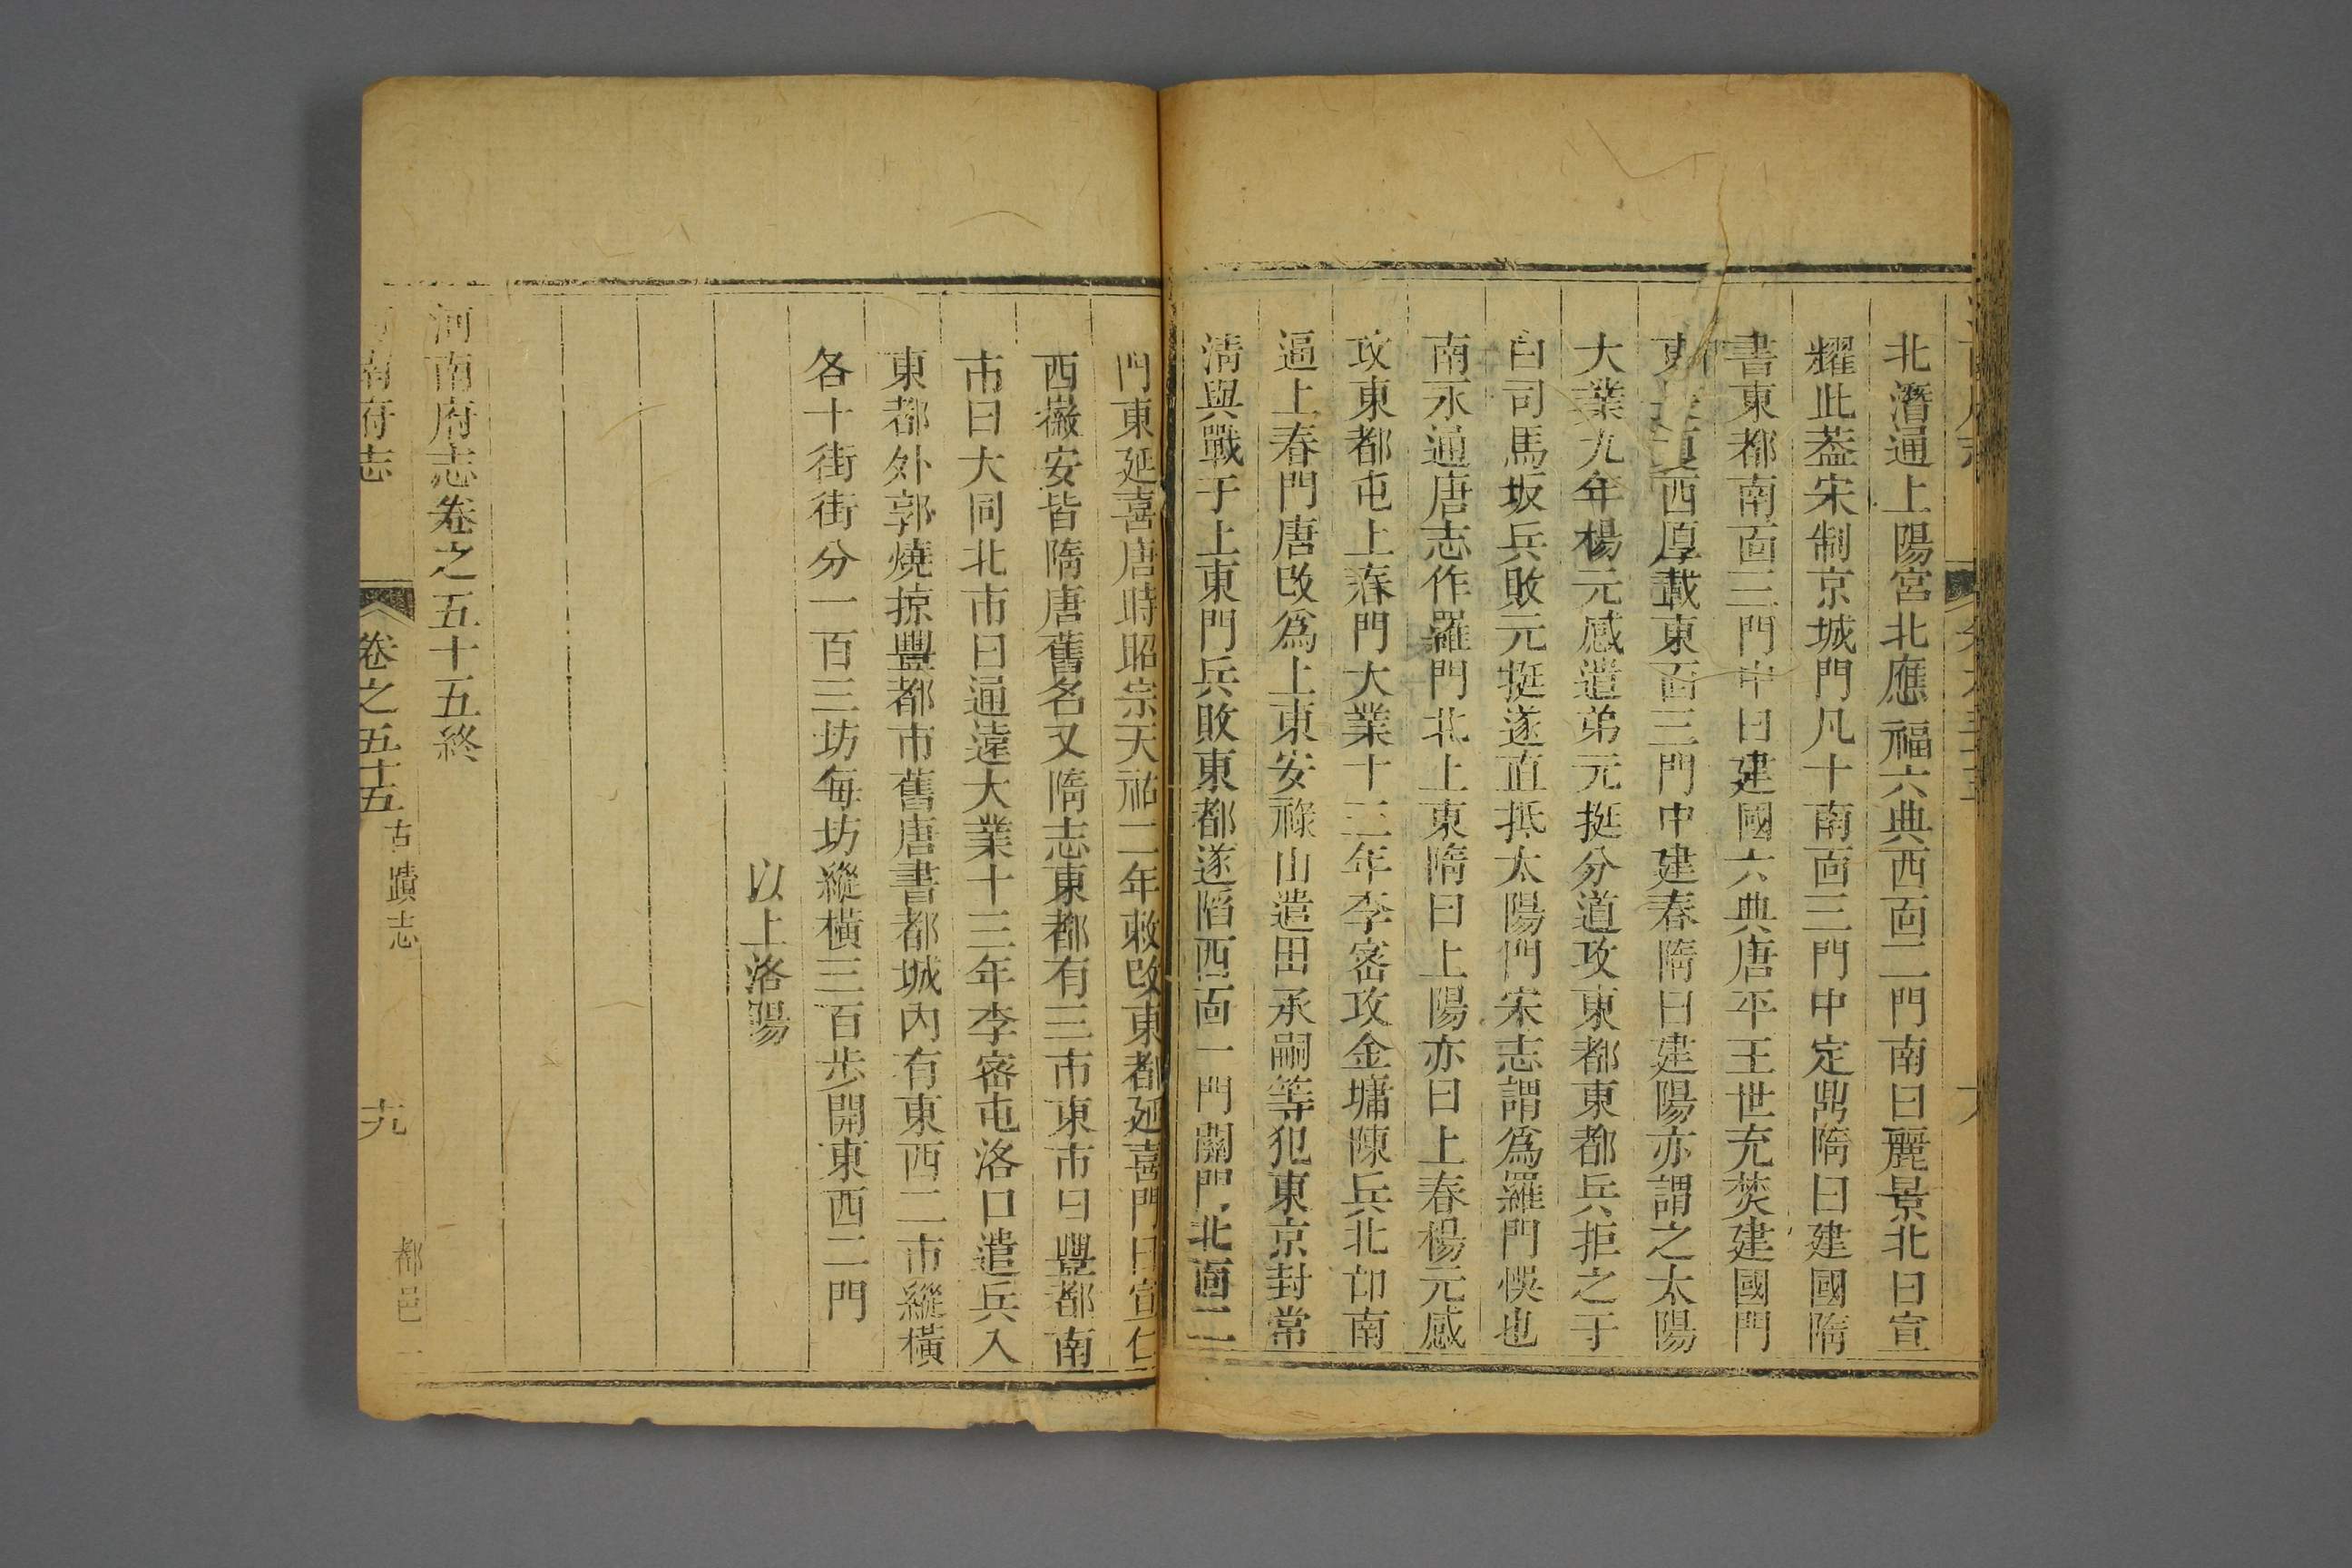 北潛通上陽宮北應福六典西面二門南曰麗景北曰宣
耀此葢宋制京城門凡十南面三門中定鼎隋曰建國隋
書東都南面三門中曰建國六典唐平王世充焚建國門
東 西厚載東面三門中建春隋曰建陽亦謂之太陽
大業九年楊元感遣弟元挺分道攻東都東都兵拒之于
白司馬坂兵敗元挺遂直抵太陽門宋志謂爲羅門悞也
南永通唐志作羅門北上東隋曰上陽亦曰上春楊元感
攻東都屯上春門大業十三年李密攻金墉陳兵北邙南
逼上春門唐改爲上東安祿山遣田承嗣等犯東京封常
淸與戰于上東門兵敗東都遂陷西面一門關門北面二
門東延喜唐時昭宗天祐二年敕改東都延喜門曰宣仁
西徽安皆隋唐舊名又隋志東都有三市東市曰豐都南
市曰大同北市曰通遠大業十三年李密屯洛口遣兵入
東都外郭燒掠豐都市舊唐書都城內有東西二市縱橫
各十街街分一百三坊每坊縱橫三百步開東西二門
以上洛陽
河南府志卷之五十五終
河南府志
卷之五十五
古蹟志
都邑一
十九